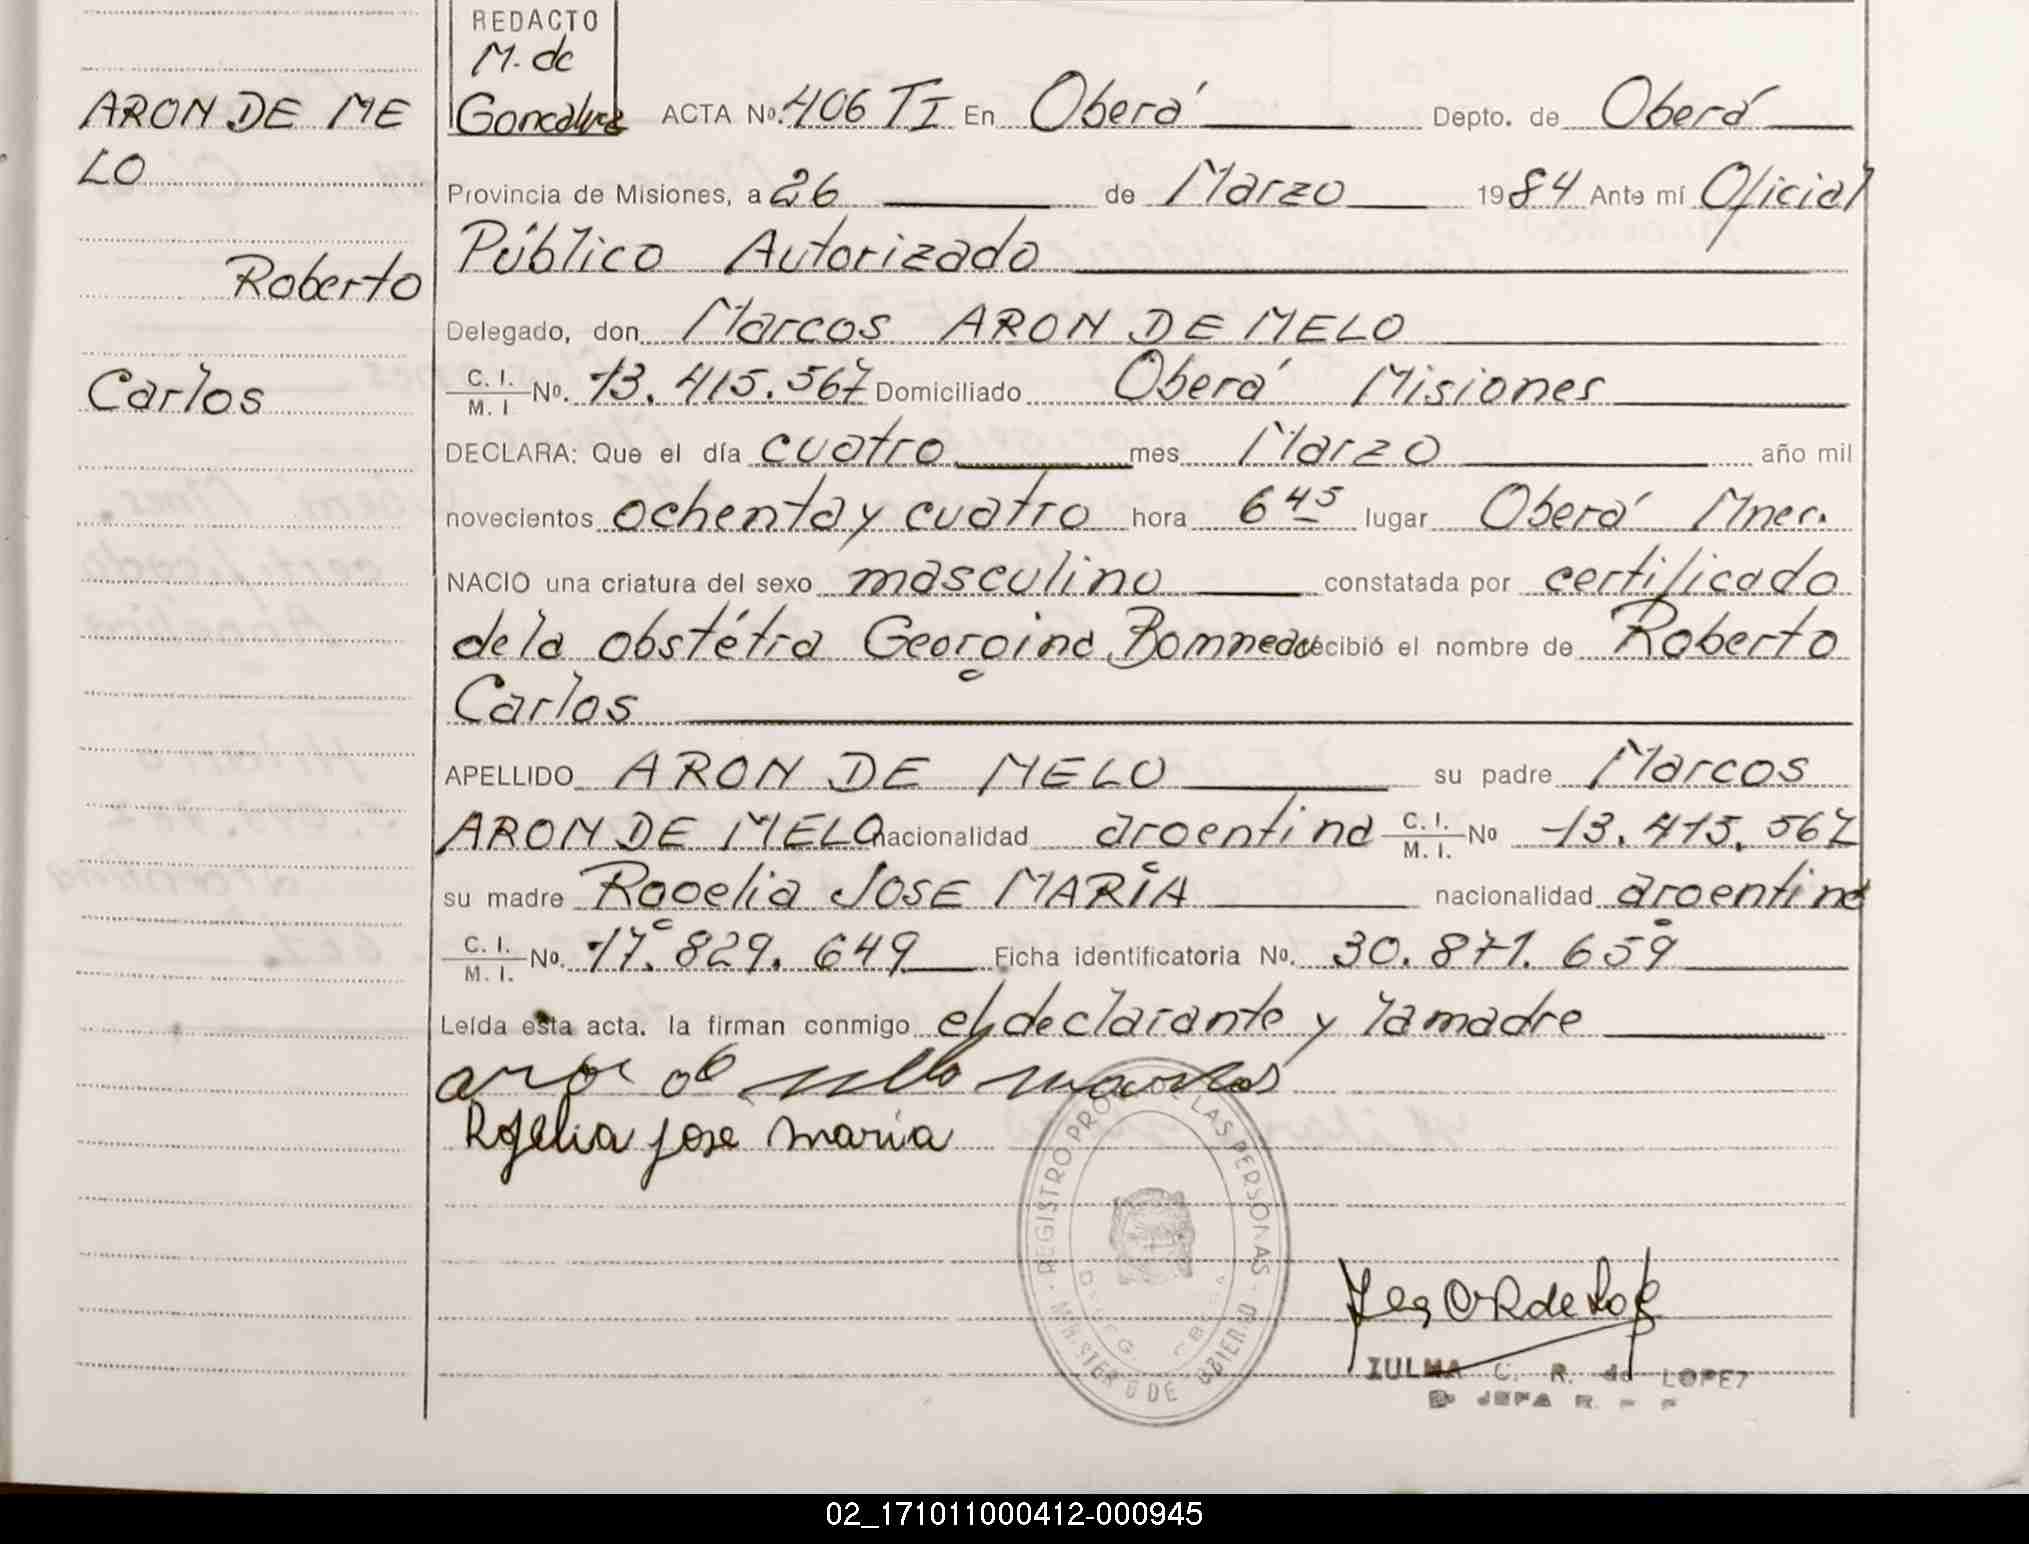 REDACTO
M. de
Goncalves
ARON DE ME
LO
Roberto
Carlos
ACTA No. 406 TI En Oberá Depto. de Oberá
Provincia de Misiones, a 26 de Marzo 1984 Ante mí Oficial
Público Autorizado
Delegado, don Marcos ARON DE MELO
C. I. / M. I No. 13.415.567 Domiciliado Oberá Misiones
DECLARA: Que el día cuatro mes Marzo año mil
novecientos ochenta y cuatro hora 6 45 lugar Oberá Mnes.
NACIO una criatura del sexo masculino constatada por certificado
de la obstétra Georgina recibió el nombre de Roberto
Carlos
APELLIDO ARON DE MELO su padre Marcos
ARON DE MELO nacionalidad argentina C. I. / M. I. No 13.415.567
su madre Rogelia JOSE MARIA nacionalidad argentina
C. I. / M. I. No. 17.829.649 Ficha identificatoria No. 30.871.659
Leída esta acta. la firman conmigo el declarante y la madre
Rogelia jose maria
REGISTRO PROV. DE LAS PERSONAS
MINISTERIO DE GOBIERNO
ZULMA C. R. de LOPEZ
JEFA R.
02_171011000412-000945